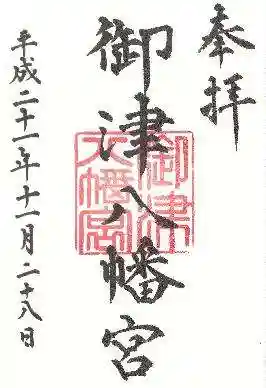 奉拝
御津八幡宮
御津八幡宮
平成二十一年十一月二十八日